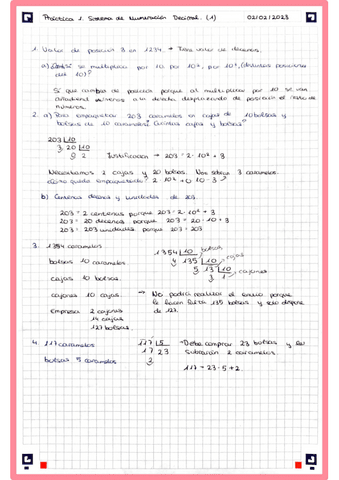 Práctica 1. Sistema de Numeración Decimal. (1) 02/02/2023
1. Valor de posición 3 en 1234. → Tiene valor de decenas.
a) si se multiplica por 10, por 10², por 10³, (distintas posiciones del 10)?
Sí que cambia de posición porque al multiplicar por 10 se van añadiendo ceros a la derecha desplazando de posición el resto de números.
2. a) Para empaquetar 203 caramelos en cajas de 10 bolsas y bolsas de 10 caramelos. ¿Cuántas cajas y bolsas?
203 | 10
3 20 | 10
0 2 Justificación → 203 = 2 · 10² + 3
Necesitamos 2 cajas y 20 bolsas. Nos sobran 3 caramelos.
¿Cómo queda empaquetado? 2 · 10² + 0 · 10 + 3
b) Centenas, decenas y unidades de 203.
203 = 2 centenas porque 203 = 2 · 10² + 3
203 = 20 decenas porque 203 = 20 · 10 + 3
203 = 203 unidades porque 203 = 203
3. 1354 caramelos
1354 | 10 bolsas
bolsas 10 caramelos
4 135 | 10 cajas
5 13 | 10 cajones
cajas 10 bolsas
3 1
cajones 10 cajas → No podría realizar el envío porque
empresa 2 cajones le hacen falta 135 bolsas y solo dispone
14 cajas de 127.
127 bolsas.
4. 117 caramelos 117 | 5 → Debe comprar 23 bolsas y le
17 23 sobrarán 2 caramelos.
bolsas 5 caramelos 2
117 = 23 · 5 + 2